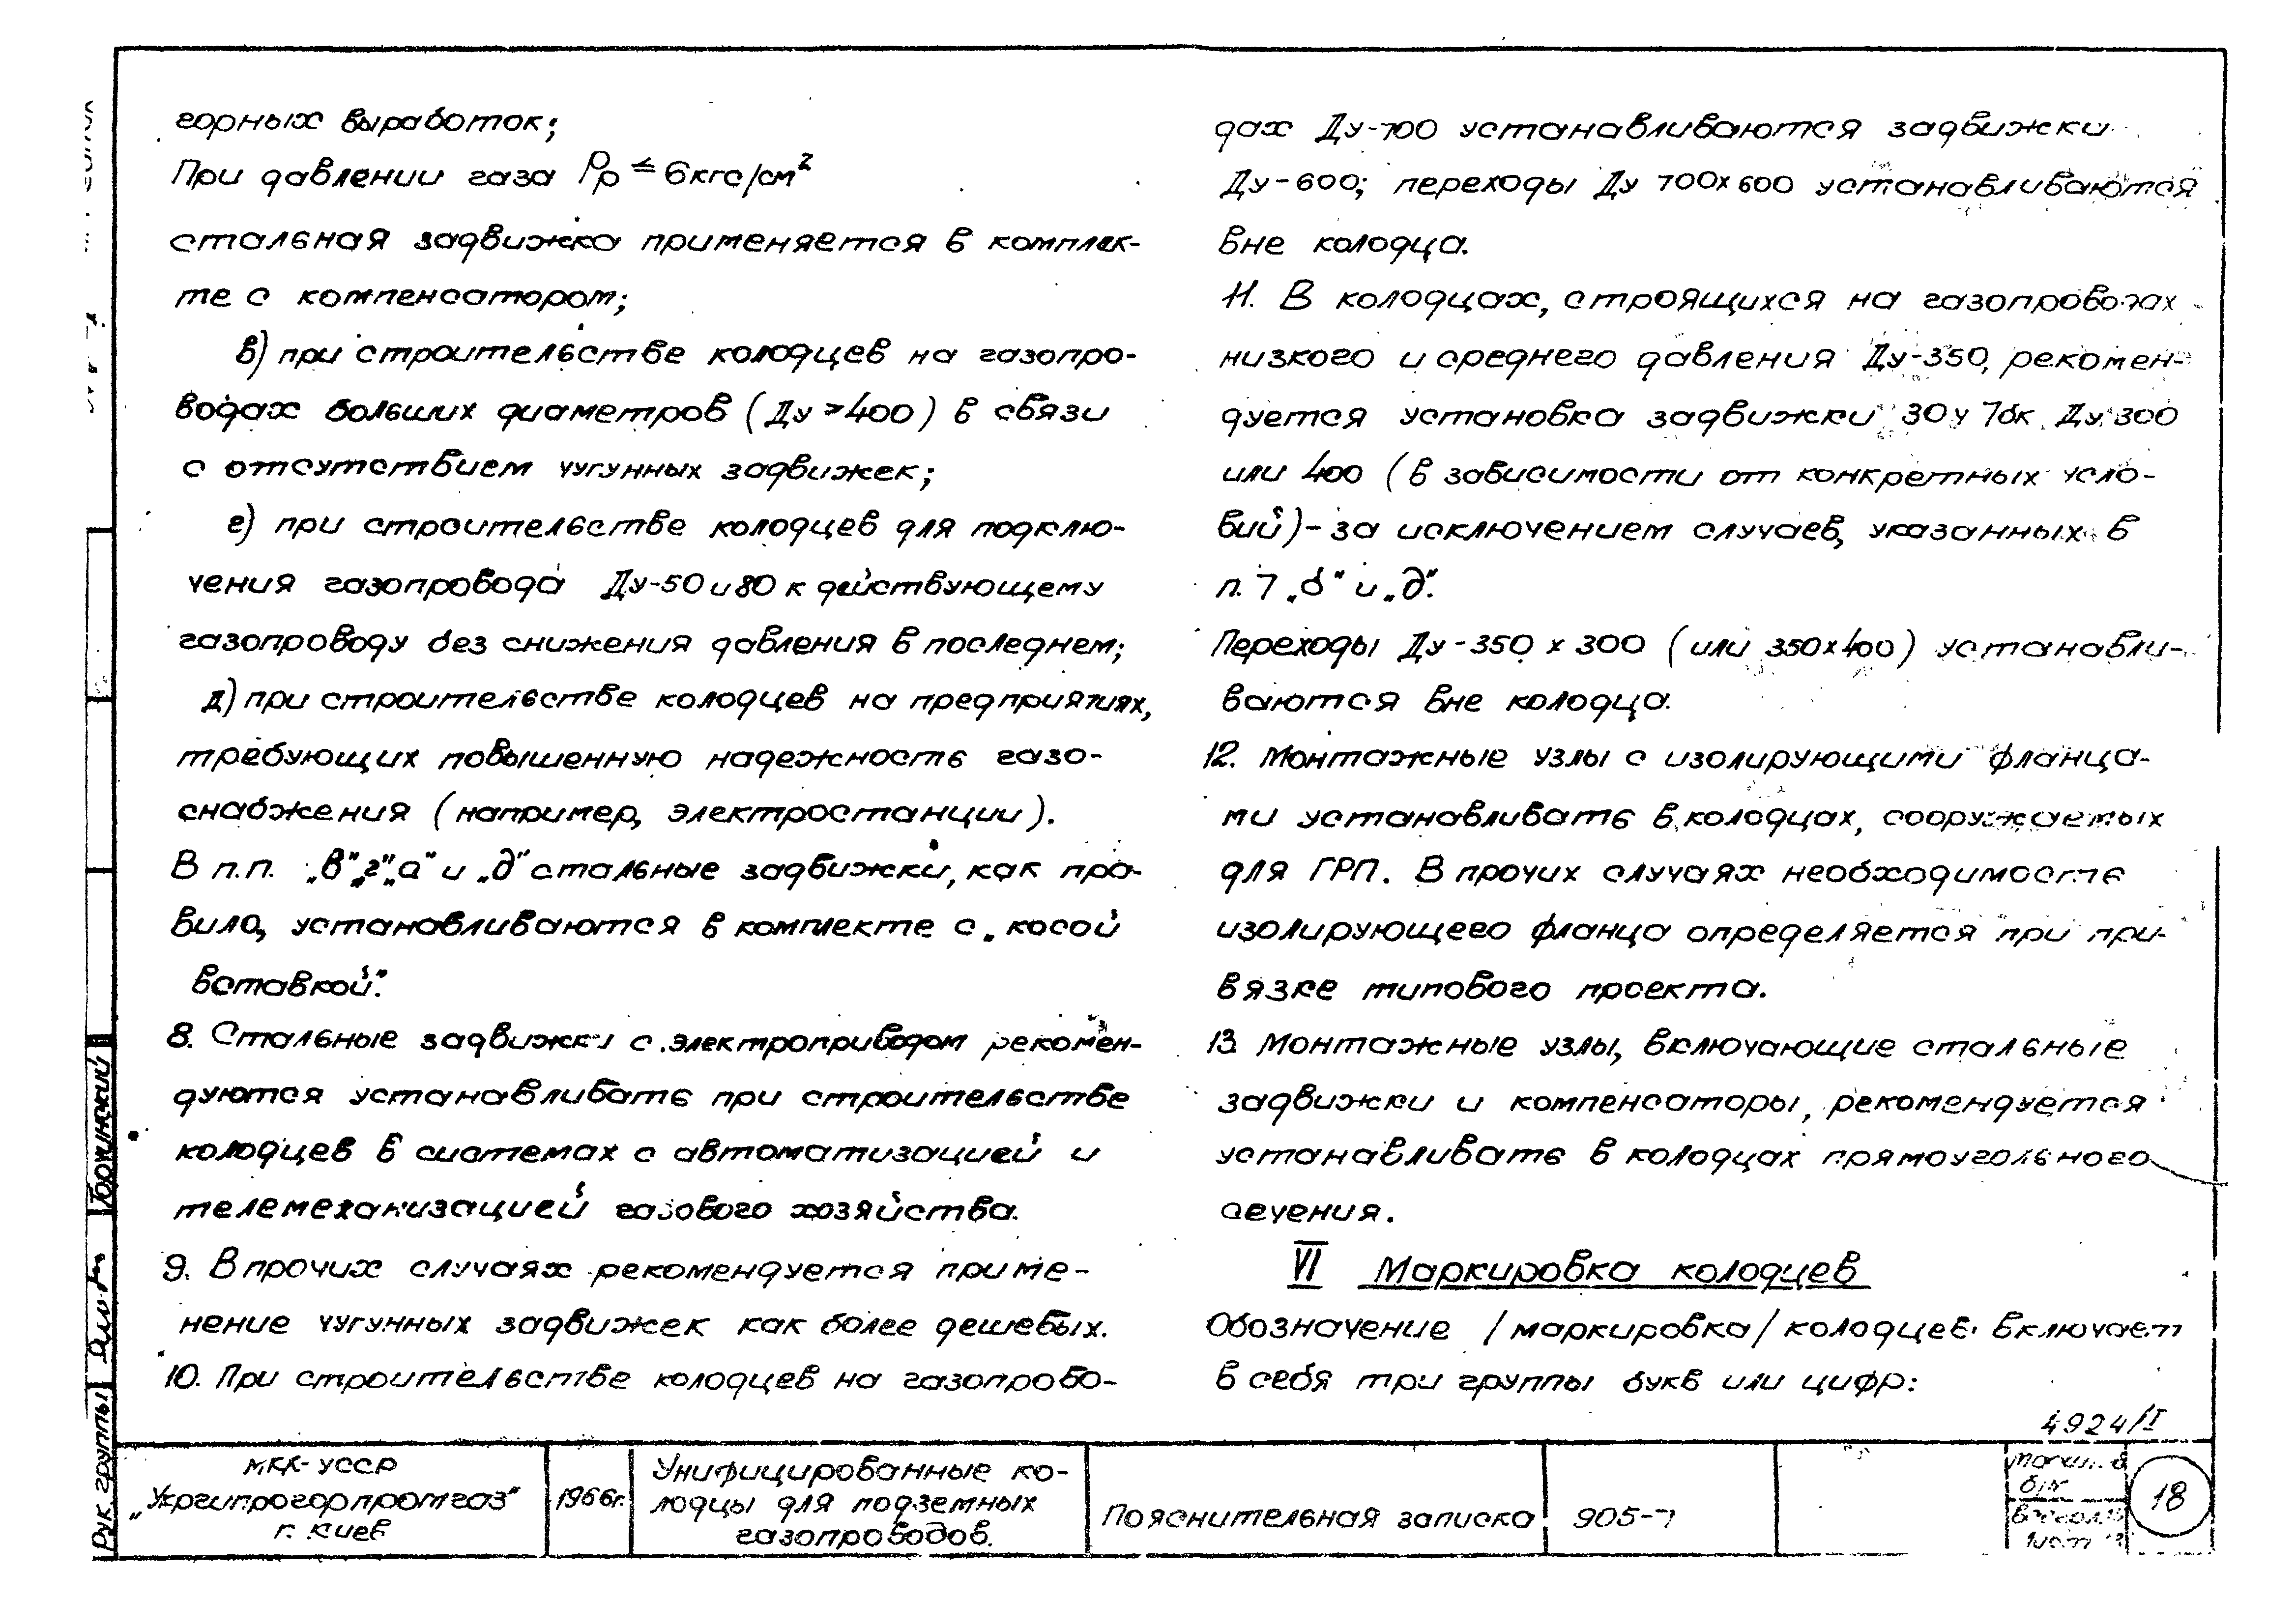 горных выработок;
При давлении газа Pр ≤ 6кгс/см²
стальная задвижка применяется в комплек-
те с компенсатором;
в) при строительстве колодцев на газопро-
водах больших диаметров (Ду > 400) в связи
с отсутствием чугунных задвижек;
г) при строительстве колодцев для подклю-
чения газопровода Ду-50 и 80 к действующему
газопроводу без снижения давления в последнем;
д) при строительстве колодцев на предприятиях,
требующих повышенную надежность газо-
снабжения (например, электростанции).
В п.п. „в" „г" „а" и „д" стальные задвижки, как пра-
вило, устанавливаются в комплекте с „косой
вставкой".
8. Стальные задвижки с электроприводом рекомен-
дуются устанавливать при строительстве
колодцев в системах с автоматизацией и
телемеханизацией газового хозяйства.
9. В прочих случаях рекомендуется приме-
нение чугунных задвижек как более дешевых.
10. При строительстве колодцев на газопрово-
дах Ду-700 устанавливаются задвижки
Ду-600; переходы Ду 700х600 устанавливаются
вне колодца.
11. В колодцах, строящихся на газопроводах
низкого и среднего давления Ду-350, рекомен-
дуется установка задвижки 30ч7бк Ду 300
или 400 (в зависимости от конкретных усло-
вий) - за исключением случаев, указанных в
п. 7 „б" и „д".
Переходы Ду-350 х 300 (или 350х400) устанавли-
ваются вне колодца.
12. Монтажные узлы с изолирующими фланца-
ми устанавливать в колодцах, сооружаемых
для ГРП. В прочих случаях необходимость
изолирующего фланца определяется при при-
вязке типового проекта.
13. Монтажные узлы, включающие стальные
задвижки и компенсаторы, рекомендуется
устанавливать в колодцах прямоугольного
сечения.
VI Маркировка колодцев
Обозначение /маркировка/ колодцев включает
в себя три группы букв или цифр:
4924/I
МКК-УССР
„Укргипрогорпромгаз"
г. Киев
1966г.
Унифицированные ко-
лодцы для подземных
газопроводов.
Пояснительная записка
905-7
18
Рук. группы